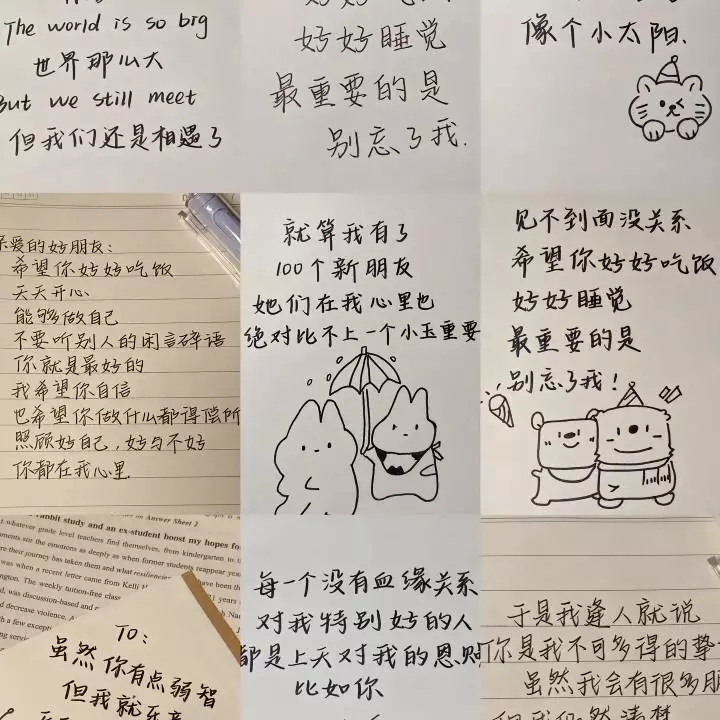 The world is so big
世界那么大
But we still meet
但我们还是相遇了
好好睡觉
最重要的是
别忘了我.
像个小太阳.
亲爱的好朋友:
希望你好好吃饭
天天开心
能够做自己
不要听别人的闲言碎语
你就是最好的
我希望你自信
也希望你做什么都得偿所
照顾好自己,好与不好
你都在我心里
就算我有了
100个新朋友
她们在我心里也
绝对比不上一个小玉重要
见不到面没关系
希望你好好吃饭
好好睡觉
最重要的是
别忘了我!
Answer Sheet 2
rabbit study and an ex-student boost my hopes for
whatever grade level teachers find themselves, from kindergarten to
sent the emotions as deeply as when former students reappear
their journey has taken them and what
was when a recent letter came from Kelli
The weekly tutoring-free
was discussion-based and
decrease violence.
with a few exceptio
TO:
虽然你有点弱智
但我就乐意
每一个没有血缘关系
对我特别好的人
都是上天对我的恩赐
比如你
于是我逢人就说
你是我不可多得的挚
虽然我会有很多朋
但我仍然清楚